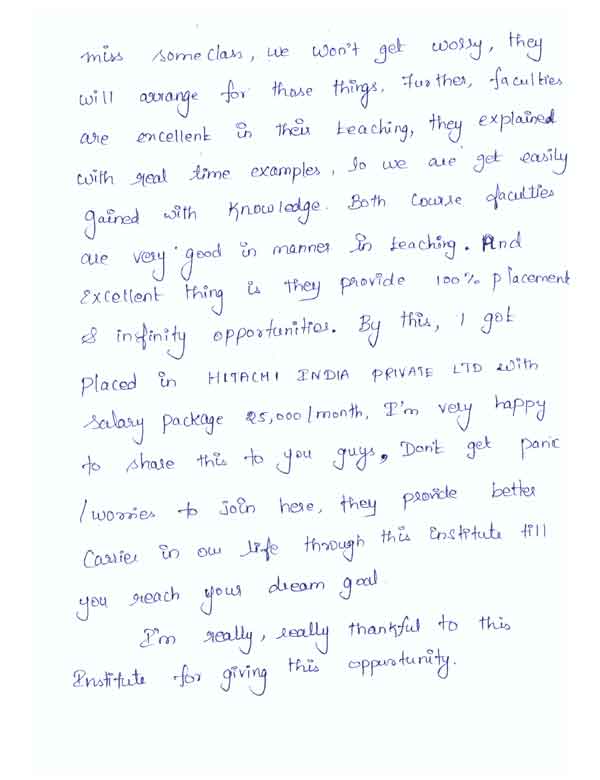 miss some class, we won't get worry, they
will arrange for those things. Further, faculties
are encellent in their teaching, they explained
with real time examples, so we are get easily
gained with knowledge. Both course faculties
are very good in manner in teaching. And
Excellent thing is they provide 100% placement
& infinity opportunities. By this, I got
placed in HITACHI INDIA PRIVATE LTD with
salary package 25,000/month, I'm very happy
to share this to you guys, Don't get panic
/worries to join here, they provide better
Carrier in our life through this institute till
you reach your dream goal.
I'm really, really thankful to this
Institute for giving this oppurtunity.